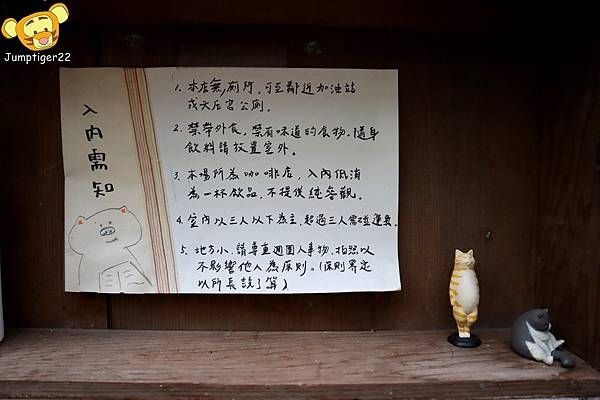 Jumptiger22
入內需知
1. 本店無廁所，可至鄰近加油站
或天后宮公廁。
2. 禁帶外食，禁有味道的食物。隨身
飲料請放置室外。
3. 本場所為咖啡店，入內低消
為一杯飲品，不提供純參觀。
4. 室內以三人以下為主，超過三人需碰運氣。
5. 地方小，請尊重週圍人事物，拍照以
不影響他人為原則。(原則界定
以所長說了算)